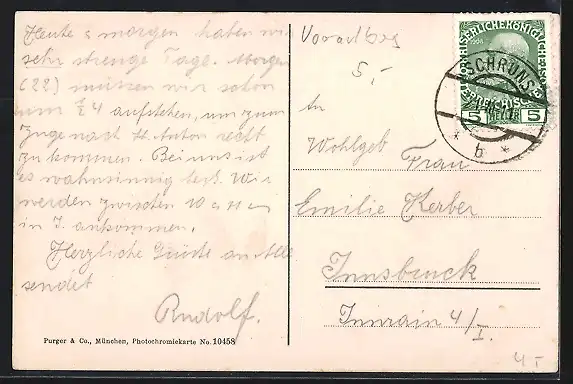 Heute & morgen haben wir
sehr strenge Tage. Morgen
(22) müssen wir schon
um ½ 4 aufstehen, um zum
Zuge nach St. Anton recht
zu kommen. Bei uns ist
es wahnsinnig heiß. Wir
werden zwischen 10 & 11
in I. ankommen.
Herzliche Grüße an Alle
sendet
Rudolf.
Purger & Co., München, Photochromiekarte No. 10458
Vorarlbg
5,-
An
Wohlgeb Frau
Emilie Kerber
Innsbruck
Innrain 4/I.
SCHRUNS
* b *
1908
5 HELLER 5
4 -